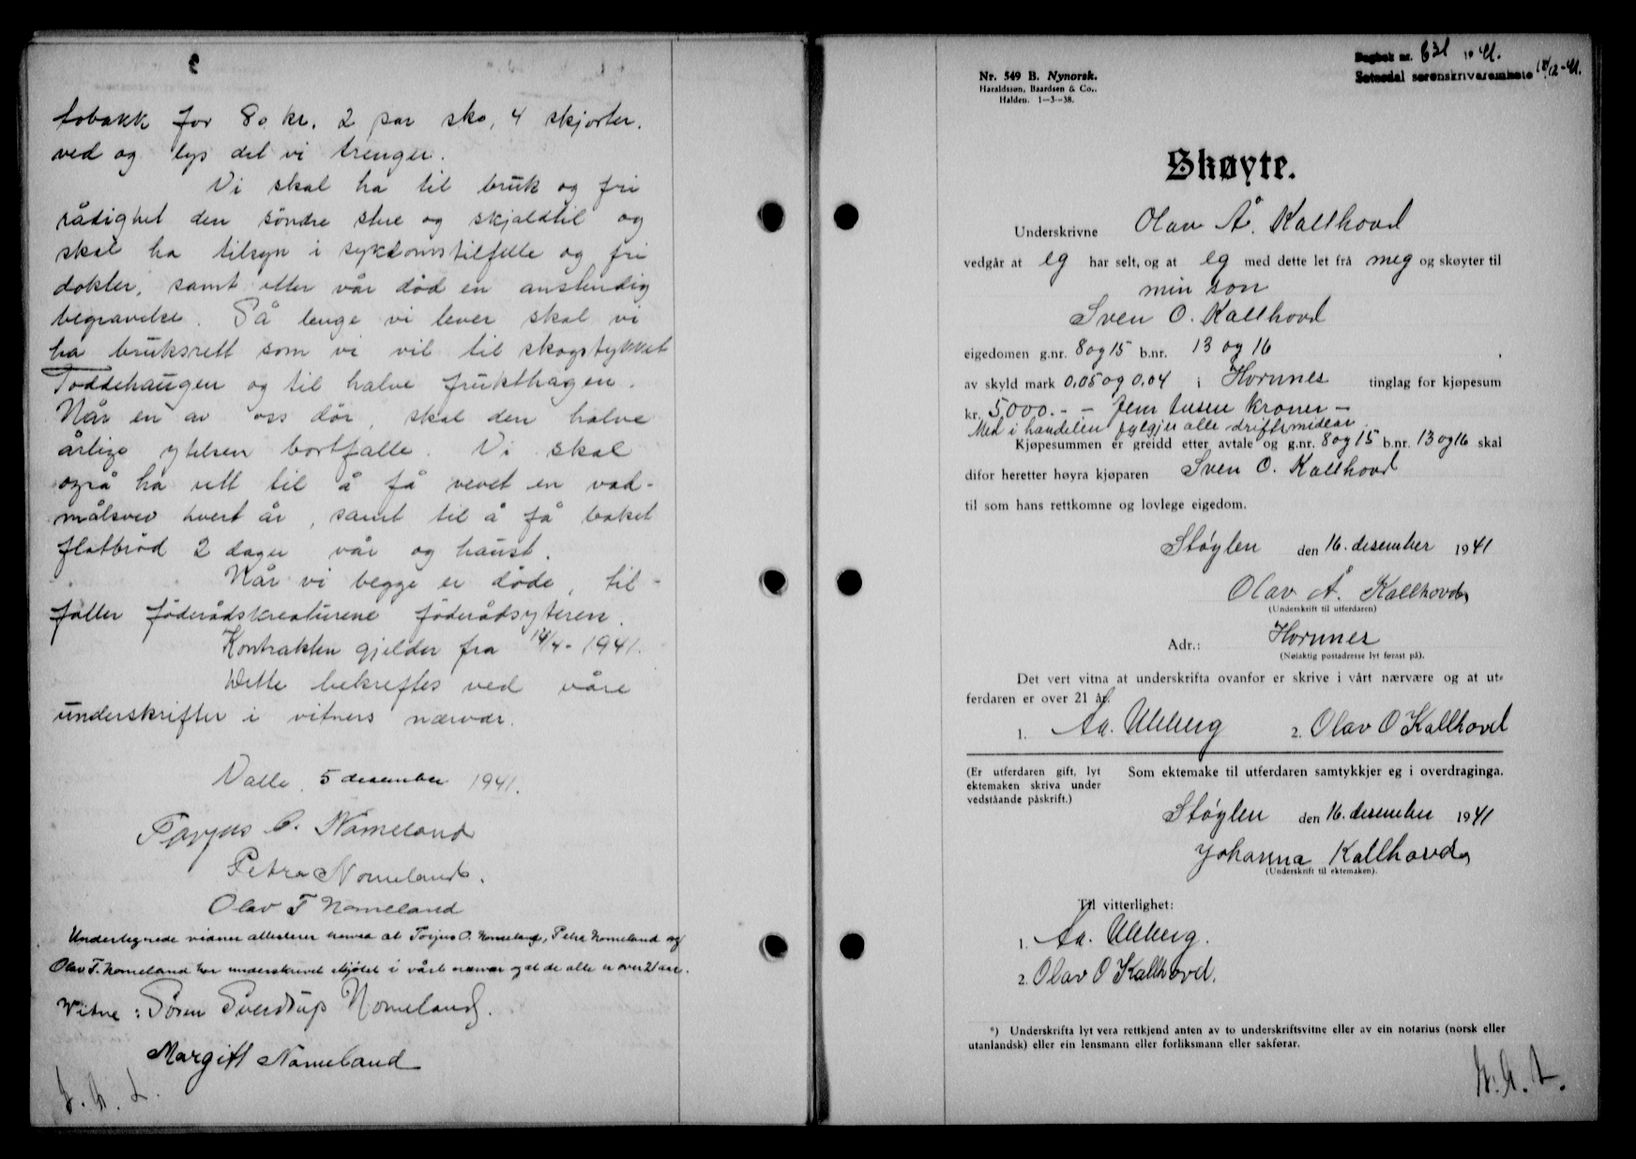 tobakk for 80 kr. 2 par sko, 4 skjorter.
ved og lys det vi trenger.
Vi skal ha til bruk og fri
rådighet den söndre stue og skjaldtil og
skal ha tilsyn i sykdomstilfelle og fri
dokter, samt etter vår död en anstendig
begravelse. Så lenge vi lever skal vi
ha bruksrett som vi vil til skogstykket
Toddehaugen og til halve frukthagen.
Når en av oss dör, skal den halve
årlige ytelsen bortfalle. Vi skal
også ha rett til å få vevet en vad-
målsvev hvert år, samt til å få baket
flatbröd 2 dager vår og haust.
Når vi begge er döde, til-
faller föderådskreaturene föderådsyteren.
Kontrakten gjelder fra 14/4-1941.
Dette bekreftes ved våre
underskrifter i vitners nærvær.
Valle, 5 desember 1941.
Torjus O. Nomeland
Petra Nomeland.
Olav T Nomeland
Undertegnede vidner attesterer herved at Torjus O. Nomeland, Petra Nomeland og
Olav T. Nomeland har underskrevet skjötet i vårt nærvær og at de alle er over 21 aar.
Vitne: Sören Sverdrup Nomeland.
Margitt Nomeland
Dagbok nr. 631 1941.
Setesdal sorenskrivarembete 18/12-41.
Nr. 549 B. Nynorsk.
Haraldsson, Baardsen & Co.,
Halden. 1—3—38.
Skøyte.
Underskrivne Olav Å. Kallhovd
vedgår at eg har selt, og at eg med dette let frå meg og skøyter til
min son
Sven O. Kallhovd
eigedomen g.nr. 8 og 15 b.nr. 13 og 16
av skyld mark 0,05 og 0,04 i Hornnes tinglag for kjøpesum
kr. 5000.- - fem tusen kroner -
Med i handelen fylgjer alle driftsmidlar.
Kjøpesummen er greidd etter avtale og g.nr. 8 og 15 b.nr. 13 og 16 skal
difor heretter høyra kjøparen Sven O. Kallhovd
til som hans rettkomne og lovlege eigedom.
Støylen den 16. desember 1941
Olav Å. Kallhovd
(Underskrift til utferdaren)
Adr.: Hornnes
(Nøiaktig postadresse lyt førast på).
Det vert vitna at underskrifta ovanfor er skrive i vårt nærvære og at ut-
ferdaren er over 21 år.
1. Aa. Uleberg 2. Olav O Kallhovd
(Er utferdaren gift, lyt
ektemaken skriva under
vedståande påskrift.)
Som ektemake til utferdaren samtykkjer eg i overdraginga.
Støylen den 16. desember 1941
Johanna Kallhovd
(Underskrift til ektemaken).
Til vitterlighet:
1. Aa. Uleberg.
2. Olav O Kallhovd.
*) Underskrifta lyt vera rettkjend anten av to underskriftsvitne eller av ein notarius (norsk eller
utanlandsk) eller ein lensmann eller forliksmann eller sakførar.